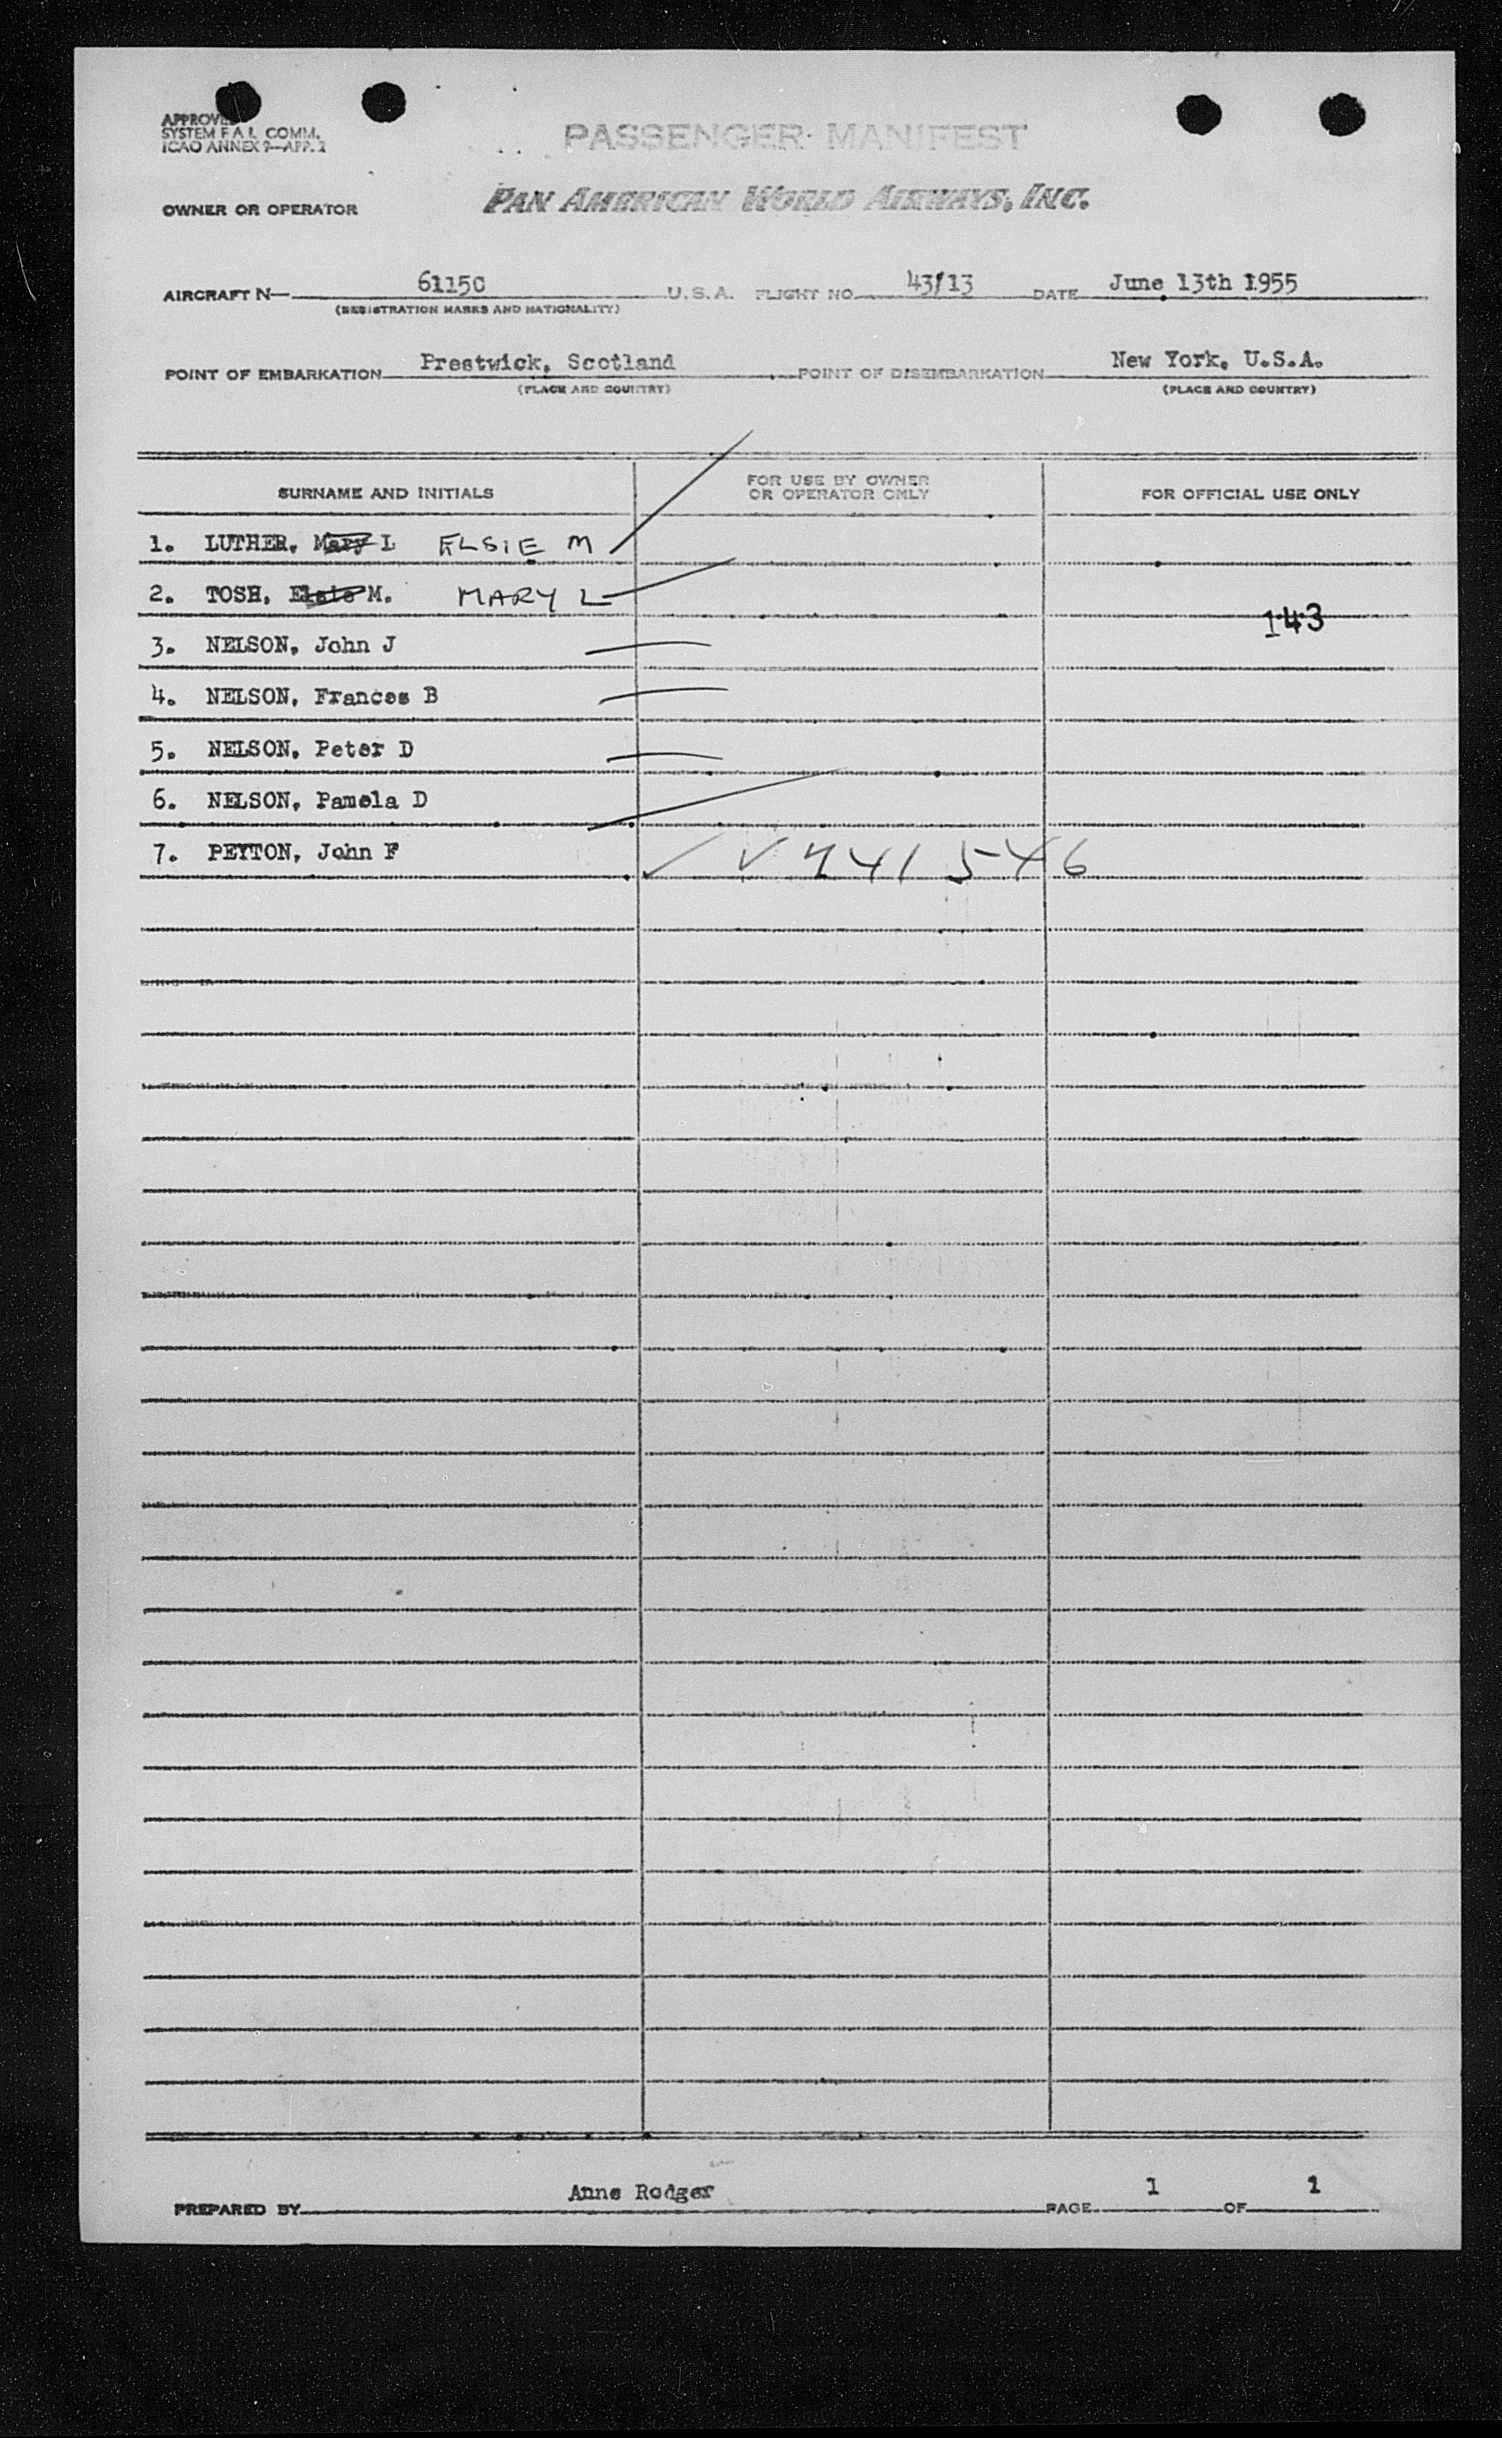 APPROVED
SYSTEM F A L COMM.
ICAO ANNEX 9—APP. 2
PASSENGER MANIFEST
OWNER OR OPERATOR PAN AMERICAN WORLD AIRWAYS, INC.
AIRCRAFT N— 6115C U.S.A. FLIGHT NO. 43/13 DATE June 13th 1955
(REGISTRATION MARKS AND NATIONALITY)
POINT OF EMBARKATION Prestwick, Scotland POINT OF DISEMBARKATION New York, U.S.A.
(PLACE AND COUNTRY) (PLACE AND COUNTRY)
SURNAME AND INITIALS FOR USE BY OWNER OR OPERATOR ONLY FOR OFFICIAL USE ONLY
1. LUTHER, Mary L ELSIE M
2. TOSH, Elsie M. MARY L
143
3. NELSON, John J
4. NELSON, Frances B
5. NELSON, Peter D
6. NELSON, Pamela D
7. PEYTON, John F ✓ V 441 546
PREPARED BY Anne Rodger PAGE 1 OF 1